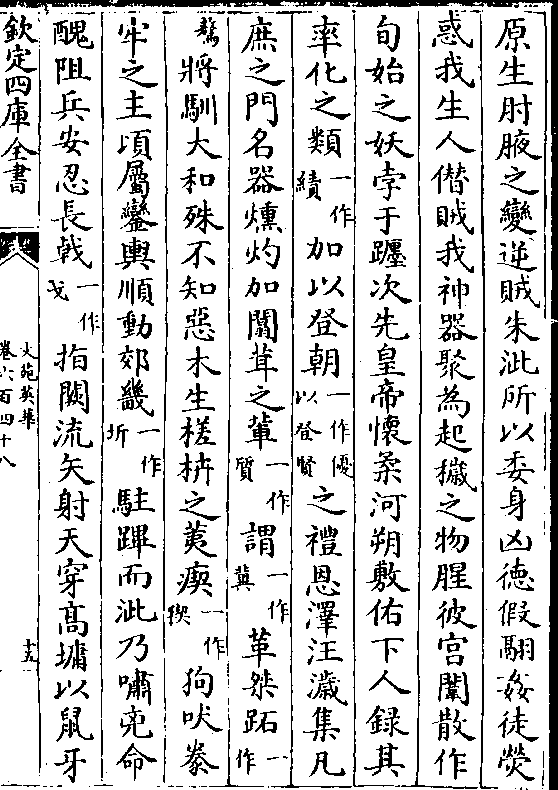 原生肘腋之變逆賊朱泚所以委身凶德假翮姦徒熒
惑我生人僭賊我神器聚為起穢之物腥彼宮闈散作
旬始之妖孛于躔次先皇帝懷柔河朔敷佑下人錄其
率化之類一作績加以登朝一作優以登賢之禮恩澤汪濊集凡
庶之門名器燻灼加闒茸之輩一作質謂一作冀革桀跖一作
驁將馴大和殊不知惡木生槎枿之荑瘈一作猰狗吠豢
牢之主頃屬鑾輿順動郊畿一作圻駐蹕而泚乃嘯兇命
醜阻兵安忍長戟一作戈指闕流矢射天穿高墉以鼠牙
欽定四庫全書
文苑英華
卷六百四十八
十五